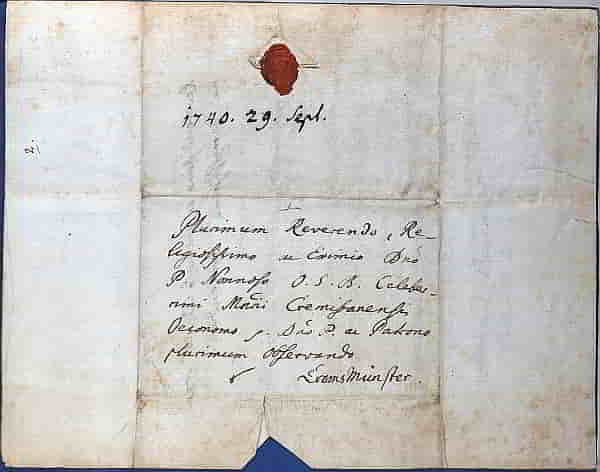 1740. 29. Sept.
2.
Plurimum Reverendo, Re-
ligiosissimo ac Eximio Dno
P. Nonnoso O. S. B. Celeber-
rimi Monri Cremissanensis
Oeconomo p. Dno P. ac Patrono
plurimum Observando
CremsMünster.